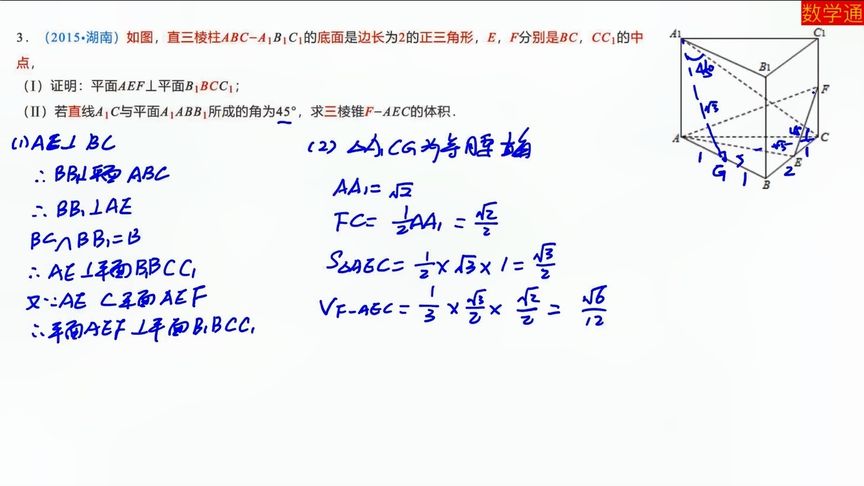 数学通
3．（2015•湖南）如图，直三棱柱ABC−A₁B₁C₁的底面是边长为2的正三角形，E，F分别是BC，CC₁的中
点，
（Ⅰ）证明：平面AEF⊥平面B₁BCC₁；
（Ⅱ）若直线A₁C与平面A₁ABB₁所成的角为45°，求三棱锥F−AEC的体积．
(1) AE⊥BC
∴BB₁⊥平面ABC
∴BB₁⊥AE
BC∩BB₁=B
∴AE⊥平面B₁BCC₁
又∵AE⊂平面AEF
∴平面AEF⊥平面B₁BCC₁
(2) △A₁CG为等腰直角
AA₁=√2
FC=1/2AA₁=√2/2
S△AEC=1/2×√3×1=√3/2
V F-AEC=1/3×√3/2×√2/2=√6/12
A₁
C₁
B₁
45°
F
√3
A
C
1
√3
1
E
G
1
B
2